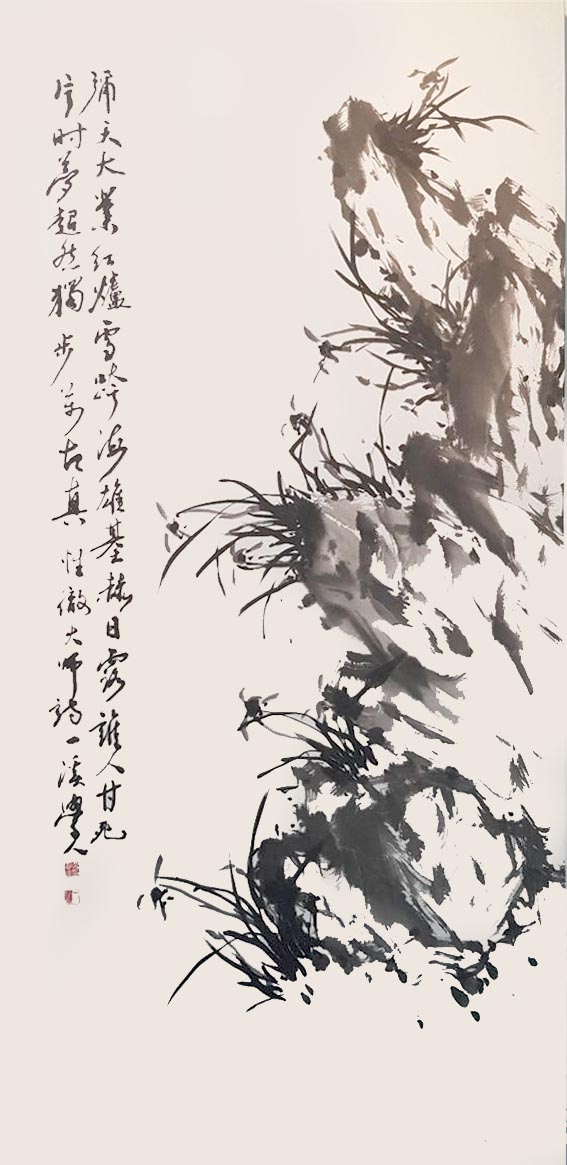 彌天大業紅爐雪跨海雄基赫日露誰人甘死
片時夢超然獨步萬古真 性徹大師詩 一溪學人